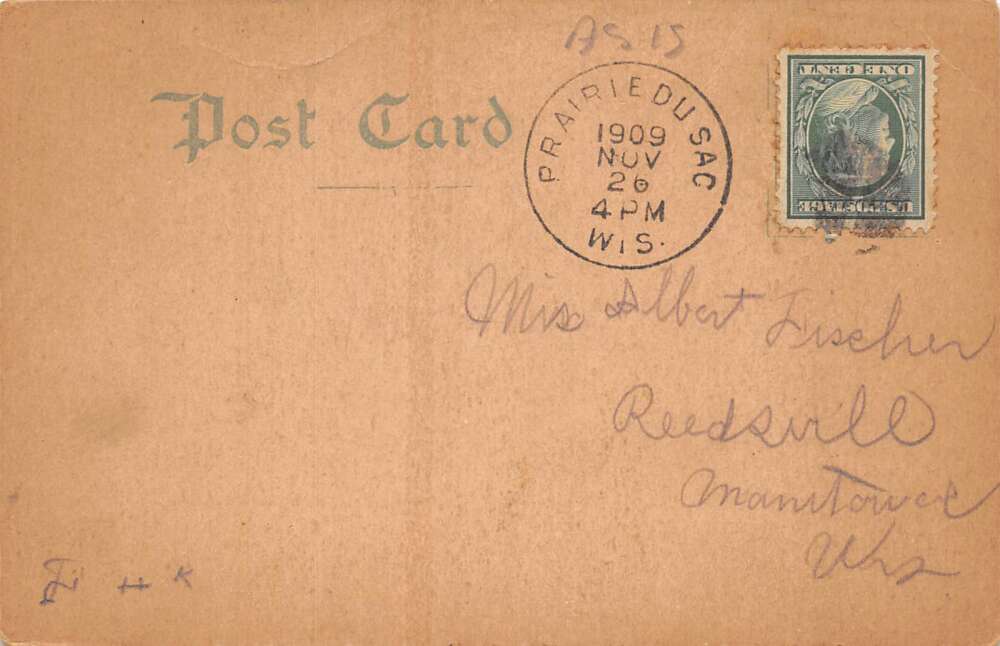 AS IS
Post Card
PRAIRIE DU SAC
1909
NOV
26
4 PM
WIS.
U.S. POSTAGE
ONE CENT
Mrs Albert Fischer
Reedsvill
Manitowoc
Wis
F H K